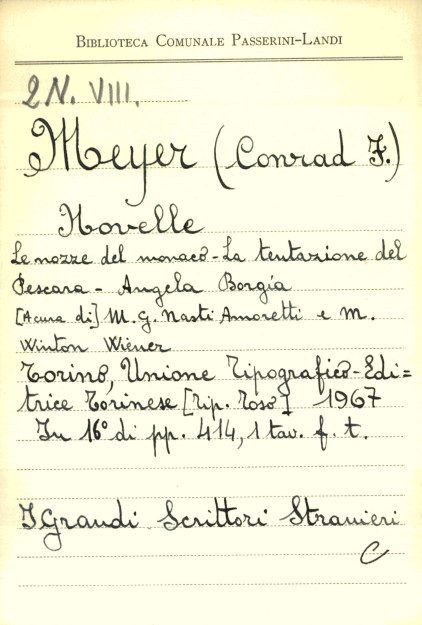 BIBLIOTECA COMUNALE PASSERINI-LANDI
2 N. VIII.
Meyer (Conrad F.)
Novelle
Le nozze del monaco - La tentazione del
Pescara - Angela Borgia
[A cura di] M. G. Nasti Amoretti e M.
Winton Wiener
Torino, Unione Tipografico-Edi=
trice Torinese [Tip. Toso] 1967
In 16° di pp. 414, 1 tav. f. t.
I Grandi Scrittori Stranieri
C